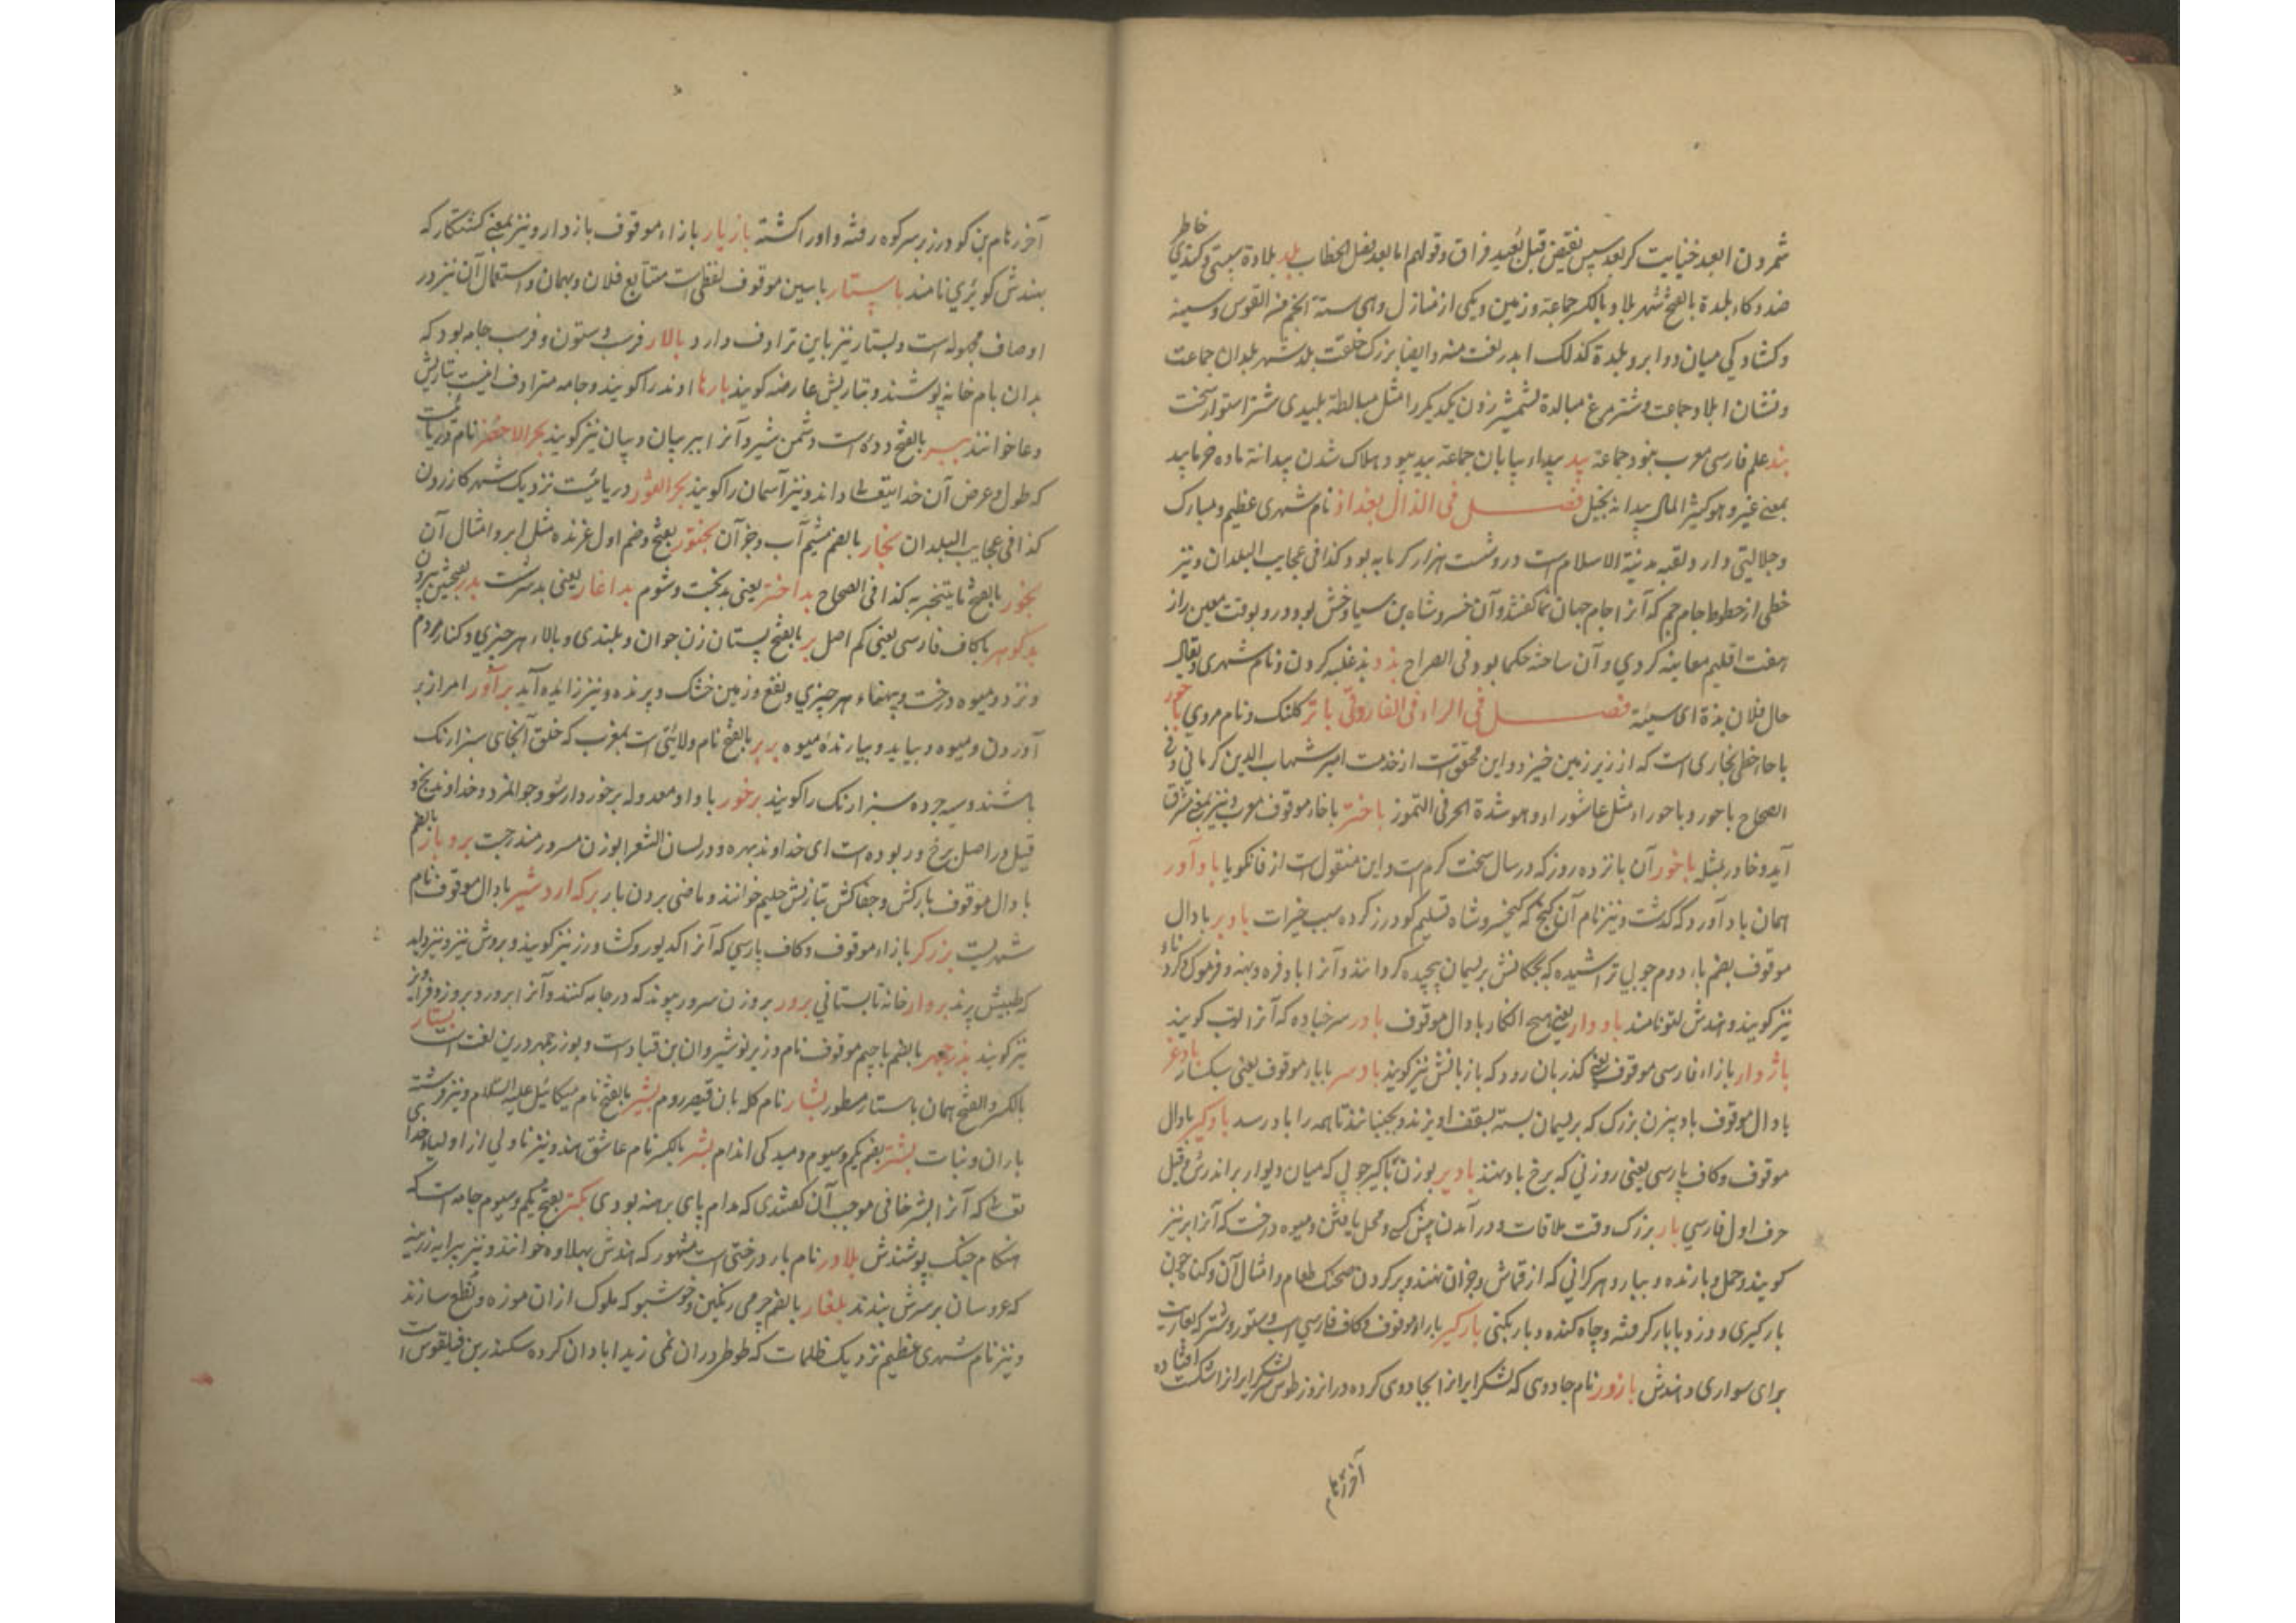 خاطر
شمردن ابعد خنایت کر بعد سپس نقیض قبل بعید فراق و قولهم اما بعد فصل الخطاب بلد بلادة سستی و کندی
ضد ذکاء بلدة بالفتح شهر بلاد بالکسر جماعة و زمین و یکی از منازل و هی ستة انجم من القوس و سینه
و کشادکی میان دو ابرو بلدة کذلک ابلد لغت منه و ایضا بزرک خلقت بلد شهر بلدان جماعت
و نشان ابلاد جماعت و شترمرغ مبالدة بشمشیر زدن یکدیکر را مثل مبالطة بلیدی شتر استوار سخت
بند علم فارسی معرب بنود جماعة بید بیداء بیابان جماعة بید بیود هلاک شدن بیدانة ماده خر بابید
بمعنی غیر و هو کثیر المال بید انه بخیل فصل فی الذال بغداذ نام شهری عظیم و مبارک
و جلالیتی دارد و لقبه مدینة الاسلام است درو شست هزار کرمابه بود کذا فی عجایب البلدان و نیز
خطی از خطوط جام جم که آنرا جام جهان نما کفتند و آن خسرو شاه بن سیاوخش بود و درو بوقت معین راز
هفت اقلیم معاینه کردی و آن ساخته حکما بود فی الصراح بذ و بذ غلبه کردن و نام شهری و یقال
حال فلان بذة ای سیئة فصل فی الراء فی الفاروقی باتر کلنک و نام مردی باحور
با حاء حطی بخاری است که از زیر زمین خیزد و این محقق است از خدمت امیر شهاب الدین کرمانی و فی
الصحاح باحور و باحوراء مثل عاشوراء و هو شدة الحر فی التموز باختر با خاء موقوف معرب و نیز بمعنی مشرق
آید و خاور مثله باخور آن پانزده روز که در سال سخت کرم است و این منقول است از فانکویا باد آور
همان باد آورد که گذشت و نیز نام آن کنج که کیخسرو شاه تسلیم کودرز کرده سبب خیرات بادبر با دال
موقوف بضم باء دوم چوبی تراشیده که بچکانش بریسمان پیچیده کردانند و آنرا بادفره و پهنه و فرموک و کردنا
نیز کویند و هندش لتو نامند باد دار یعنی هیچ انکار با دال موقوف بادر سرخباده که آنرا لوب کویند
باژدار با زاء فارسی موقوف یعنی کذربان رود که باژبانش نیز کویند باد سر با باء موقوف یعنی سبکسار بادغر
با دال موقوف بادبیزن بزرک که بریسمان بسته بسقف آویزند و بجنبانند تا همه را باد رسد بادکیر با دال
موقوف و کاف پارسی یعنی روزنی که برخ باد نهند بادیر بوزن تاکیر چوبی که میان دیوار براندرش و قبل
حرف اول فارسی بار بزرک و وقت ملاقات و در آمدن پیش کسی و محل یافتن و میوه درخت که آنرا بر نیز
کویند و حمل و بارنده و بیار و هر کرانی که از قماش و جز آن نهند و پر کردن صحنک طعام و امثال آن و کنایه چون
بارکیری و دزد با بار کرفته و چاه کنده و بار بکنی بارکیر با راء موقوف و کاف فارسی اسپ و ستور و شتر که بعاریت
برای سواری دهندش بازور نام جادوی که لشکر ایرانرا بجادوی کرده در آنروز طوس لشکر ایرانرا شکست افتاده
آخر رهام
آخر رهام بن کودرز بر سر کوه رفته و اورا کشته بازیار با زاء موقوف بازدار و نیز بمعنی کشتکار که
بهندش کوئری نامند باستار با سین موقوف لفظی است متتابع فلان و بهمان و استعمال آن نیز در
اوصاف مجهوله است و بستار نیز باین ترادف دارد بالار فرسب و ستون و فرسب جامه بود که
بدان بام خانه پوشند و بتازیش عارضه کویند بارها اوند را کویند و جامه مترادف اینست بتازیش
وعا خوانند ببر بالفتح دده است دشمن شیر و آنرا ببر بیان و بیان نیز کویند بحر الاخضر نام دریائیست
که طول و عرض آن خدایتعالی داند و نیز آسمان را کویند بحر الغور دریائیست نزدیک شهر کازرون
کذا فی عجایب البلدان بخار بالضم نشیم آب و جز آن بختور بفتح و ضم اول غرنده مثل ابر و امثال آن
بخور بالفتح ما یتبخر به کذا فی الصحاح بداختر یعنی بدبخت و شوم بداغار یعنی بدسرشت بدر بفتحتین بیرون
بدکوهر با کاف فارسی یعنی کم اصل بر بالفتح پستان زن جوان و بلندی و بالاء هر چیزی و کنار مردم
و نزد و میوه درخت و پهناء هر چیزی و نفع و زمین خشک و پرنده و نیز زایده آید برآور امر از بر
آوردن و میوه و بیاید و بیارنده میوه بربر بالفتح نام ولایتی است بمغرب که خلق آنجای سبزارنک
باشند و سیه چرده سبزارنک را کویند برخور با واو معدوله برخوردار شو و جوانمرد و خداوند بخ و
قیل در اصل برخ ور بوده است ای خداوند بهره و در لسان الشعرا بوزن مسرور مندرجست بردبار بالضم
با دال موقوف بارکش و جفاکش بتازیش حلیم خوانند و ماضی بردن بار برکه اردشیر با دال موقوف نام
شهریست برزکر با زاء موقوف و کاف پارسی که آنرا اکدیور و کشاورز نیز کویند و بروش نیز
که طبیش پرند بروار خانه تابستانی برور بروزن سرور پیوند که در جامه کنند و آنرا بروز و پروز و فراویز
نیز کویند بزرجمهر بالضم با جیم موقوف نام وزیر نوشیروان بن قباد است و بوزرجمهر درین لغت است بستار
بالکسر و الفتح همان باستار مسطور بشار نام کله بان قیصر روم بشیر بالفتح نام میکائیل علیه السلام و نیز فرشته
باران و نبات بشتر بضم یکم و سیوم و میدکی اندام بشر بالکسر نام عاشق هند و نیز نام ولی از اولیاء خدای
تعالی که آنرا بشر حافی موجب آن کفتندی که مدام پای برهنه بودی بکتر بفتح یکم و سیوم جامه است که
هنکام جنک پوشندش بلادر نام بار درختی است مشهور که هندش بهلاوه خوانند و نیز پیرایه زرینه
که عروسان بر سرش بندند بلغار بالضم چرمی رنکین و خوشبو که ملوک از ان موزه و نطع سازند
و نیز نام شهری عظیم نزدیک ظلمات که طوطی در ان نمی زید ابادان کرده سکندر بن فیلقوس است